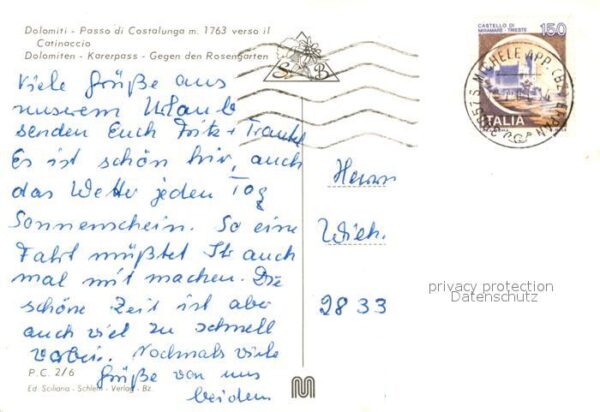 Dolomiti - Passo di Costalunga m. 1763 verso il
Catinaccio
Dolomiten - Karerpass - Gegen den Rosengarten
Viele Grüße aus
unserem Urlaub
senden Euch Fritz + Trautel
Es ist schön hir, auch
das Wetter jeden Tag
Sonnenschein. So eine
Fahrt müßtet Ihr auch
mal mit machen. Die
schöne Zeit ist aber
auch viel zu schnell
vorbei. Nochmals viele
Grüße von uns
beiden
P.C. 2/6
Ed. Sciliana - Schlern - Verlag - Bz.
CASTELLO DI
MIRAMARE - TRIESTE
150
ITALIA
S B
S. MICHELE APP.
Herrn
2833
privacy protection
Datenschutz